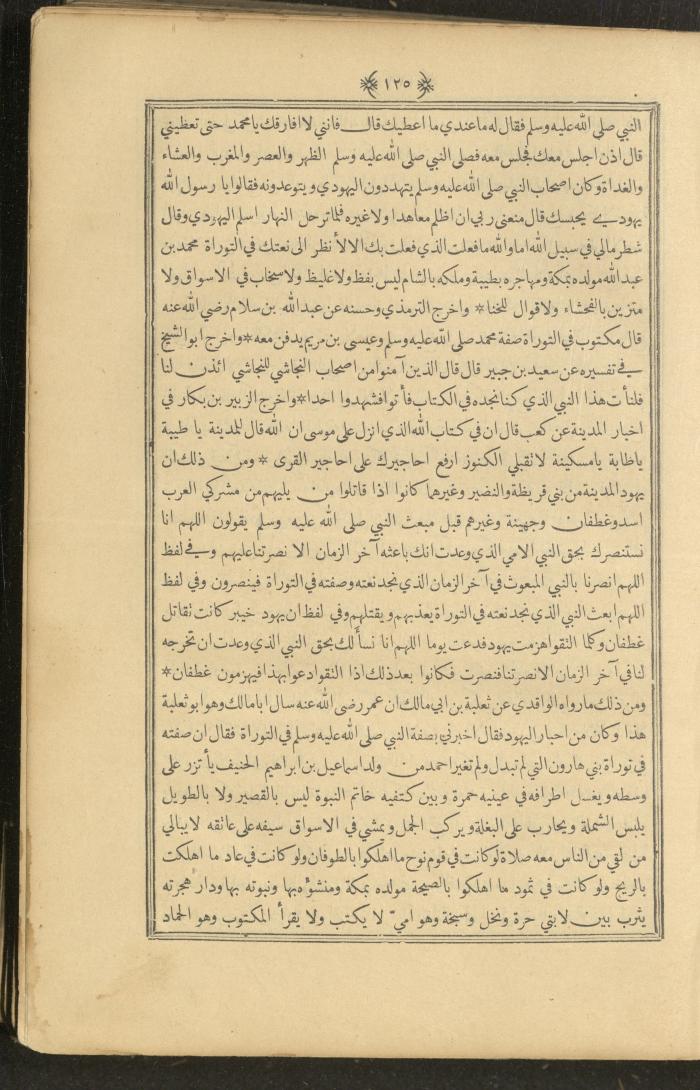 ١٢٥
النبي صلى الله عليه وسلم فقال له ما عندي ما اعطيك قال فانني لا افارقك يا محمد حتى تعطيني
قال اذن اجلس معك فجلس معه فصلى النبي صلى الله عليه وسلم الظهر والعصر والمغرب والعشاء
والغداة وكان اصحاب النبي صلى الله عليه وسلم يتهددون اليهودي ويتوعدونه فقالوا يا رسول الله
يهودي يحبسك قال منعنى ربي ان اظلم معاهدا ولا غيره فلما ترحل النهار اسلم اليهودي وقال
شطر مالي في سبيل الله اما والله ما فعلت الذي فعلت بك الا لأنظر الى نعتك في التوراة محمد بن
عبد الله مولده بمكة ومهاجره بطيبة وملكه بالشام ليس بفظ ولا غليظ ولا سخاب في الاسواق ولا
متزين بالفحشاء ولا قوال للخنا * واخرج الترمذي وحسنه عن عبد الله بن سلام رضي الله عنه
قال مكتوب في التوراة صفة محمد صلى الله عليه وسلم وعيسى بن مريم يدفن معه * واخرج ابو الشيخ
في تفسيره عن سعيد بن جبير قال قال الذين آمنوا من اصحاب النجاشي للنجاشي ائذن لنا
فلنأت هذا النبي الذي كنا نجده في الكتاب فأتوا فشهدوا احدا * واخرج الزبير بن بكار في
اخبار المدينة عن كعب قال ان في كتاب الله الذي انزل على موسى ان الله قال للمدينة يا طيبة
يا طابة يا مسكينة لا تقبلي الكنوز ارفع احاجيرك على احاجير القرى * ومن ذلك ان
يهود المدينة من بني قريظة والنضير وغيرهما كانوا اذا قاتلوا من يليهم من مشركي العرب
اسد وغطفان وجهينة وغيرهم قبل مبعث النبي صلى الله عليه وسلم يقولون اللهم انا
نستنصرك بحق النبي الامي الذي وعدت انك باعثه آخر الزمان الا نصرتنا عليهم وفي لفظ
اللهم انصرنا بالنبي المبعوث في آخر الزمان الذي نجد نعته وصفته في التوراة فينصرون وفي لفظ
اللهم ابعث النبي الذي نجد نعته في التوراة يعذبهم ويقتلهم وفي لفظ ان يهود خيبر كانت تقاتل
غطفان وكلما التقوا هزمت يهود فدعت يوما اللهم انا نسألك بحق النبي الذي وعدت ان تخرجه
لنا في آخر الزمان الا نصرتنا فنصرت فكانوا بعد ذلك اذا التقوا دعوا بهذا فيهزمون غطفان *
ومن ذلك ما رواه الواقدي عن ثعلبة بن ابي مالك ان عمر رضى الله عنه سال ابا مالك وهو ابو ثعلبة
هذا وكان من احبار اليهود فقال اخبرني بصفة النبي صلى الله عليه وسلم في التوراة فقال ان صفته
في توراة بني هارون التي لم تبدل ولم تغير احمد من ولد اسماعيل بن ابراهيم الحنيف يأتزر على
وسطه ويغسل اطرافه في عينيه حمرة وبين كتفيه خاتم النبوة ليس بالقصير ولا بالطويل
يلبس الشملة ويحارب على البغلة ويركب الجمل ويمشي في الاسواق سيفه على عاتقه لا يبالي
من لقي من الناس معه صلاة لو كانت في قوم نوح ما اهلكوا بالطوفان ولو كانت في عاد ما اهلكت
بالريح ولو كانت في ثمود ما اهلكوا بالصيحة مولده بمكة ومنشؤه بها ونبوته بها ودار هجرته
يثرب بين لابتي حرة ونخل وسبخة وهو اميّ لا يكتب ولا يقرأ المكتوب وهو الحماد